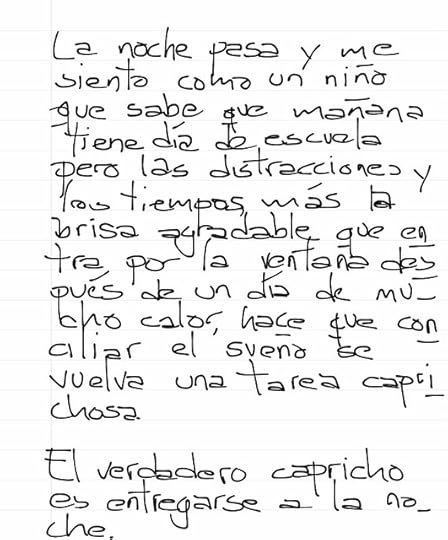 La noche pesa y me
siento como un niño
que sabe que mañana
tiene día de escuela
pero las distracciones y
los tiempos, más la
brisa agradable que en
tra por la ventana des
pués de un día de mu_
cho calor, hace que con
ciliar el sueño se
vuelva una tarea capri
chosa.
El verdadero capricho
es entregarse a la no_
che.